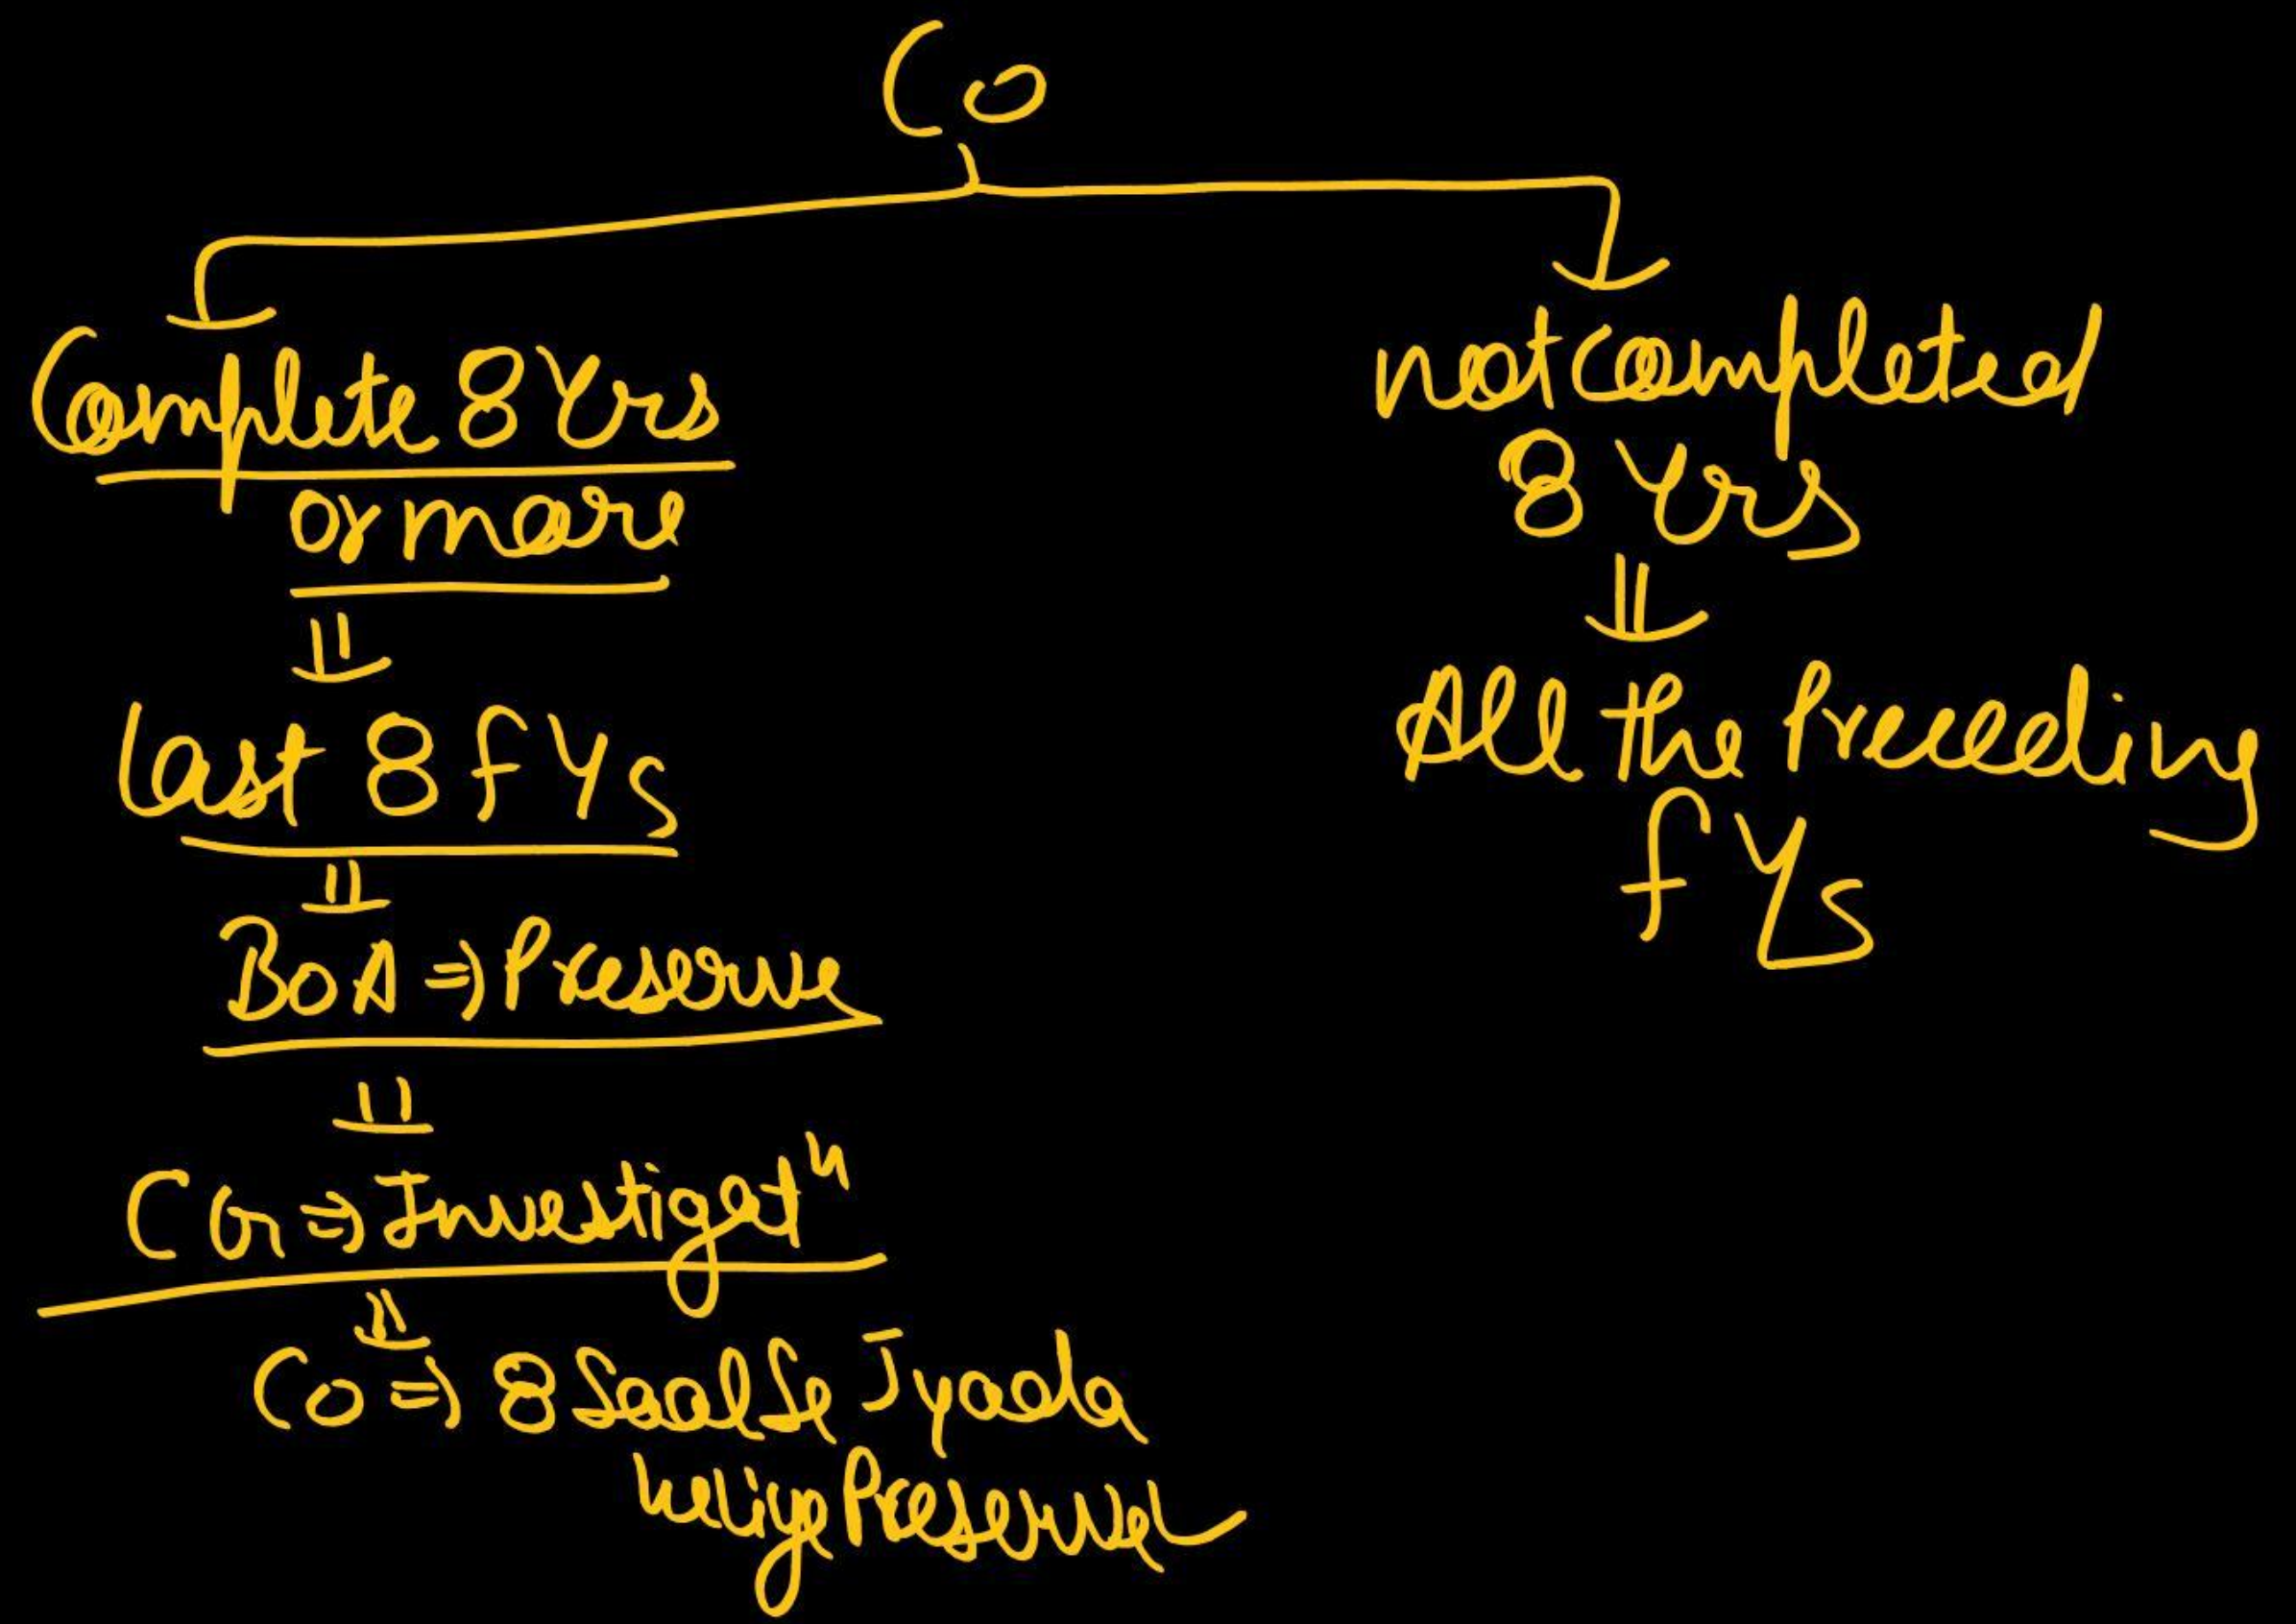 Co
Complete 8 Yrs
or more
last 8 fYs
BOA => Preserve
CG => Investigatn
Co => 8 Saal Se Jyaada
keliye Preserve
not completed
8 Yrs
All the Preceding
fYs